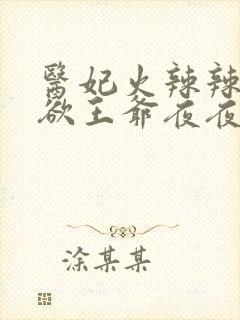 醫妃火辣辣
欲王爺夜夜
涂某某